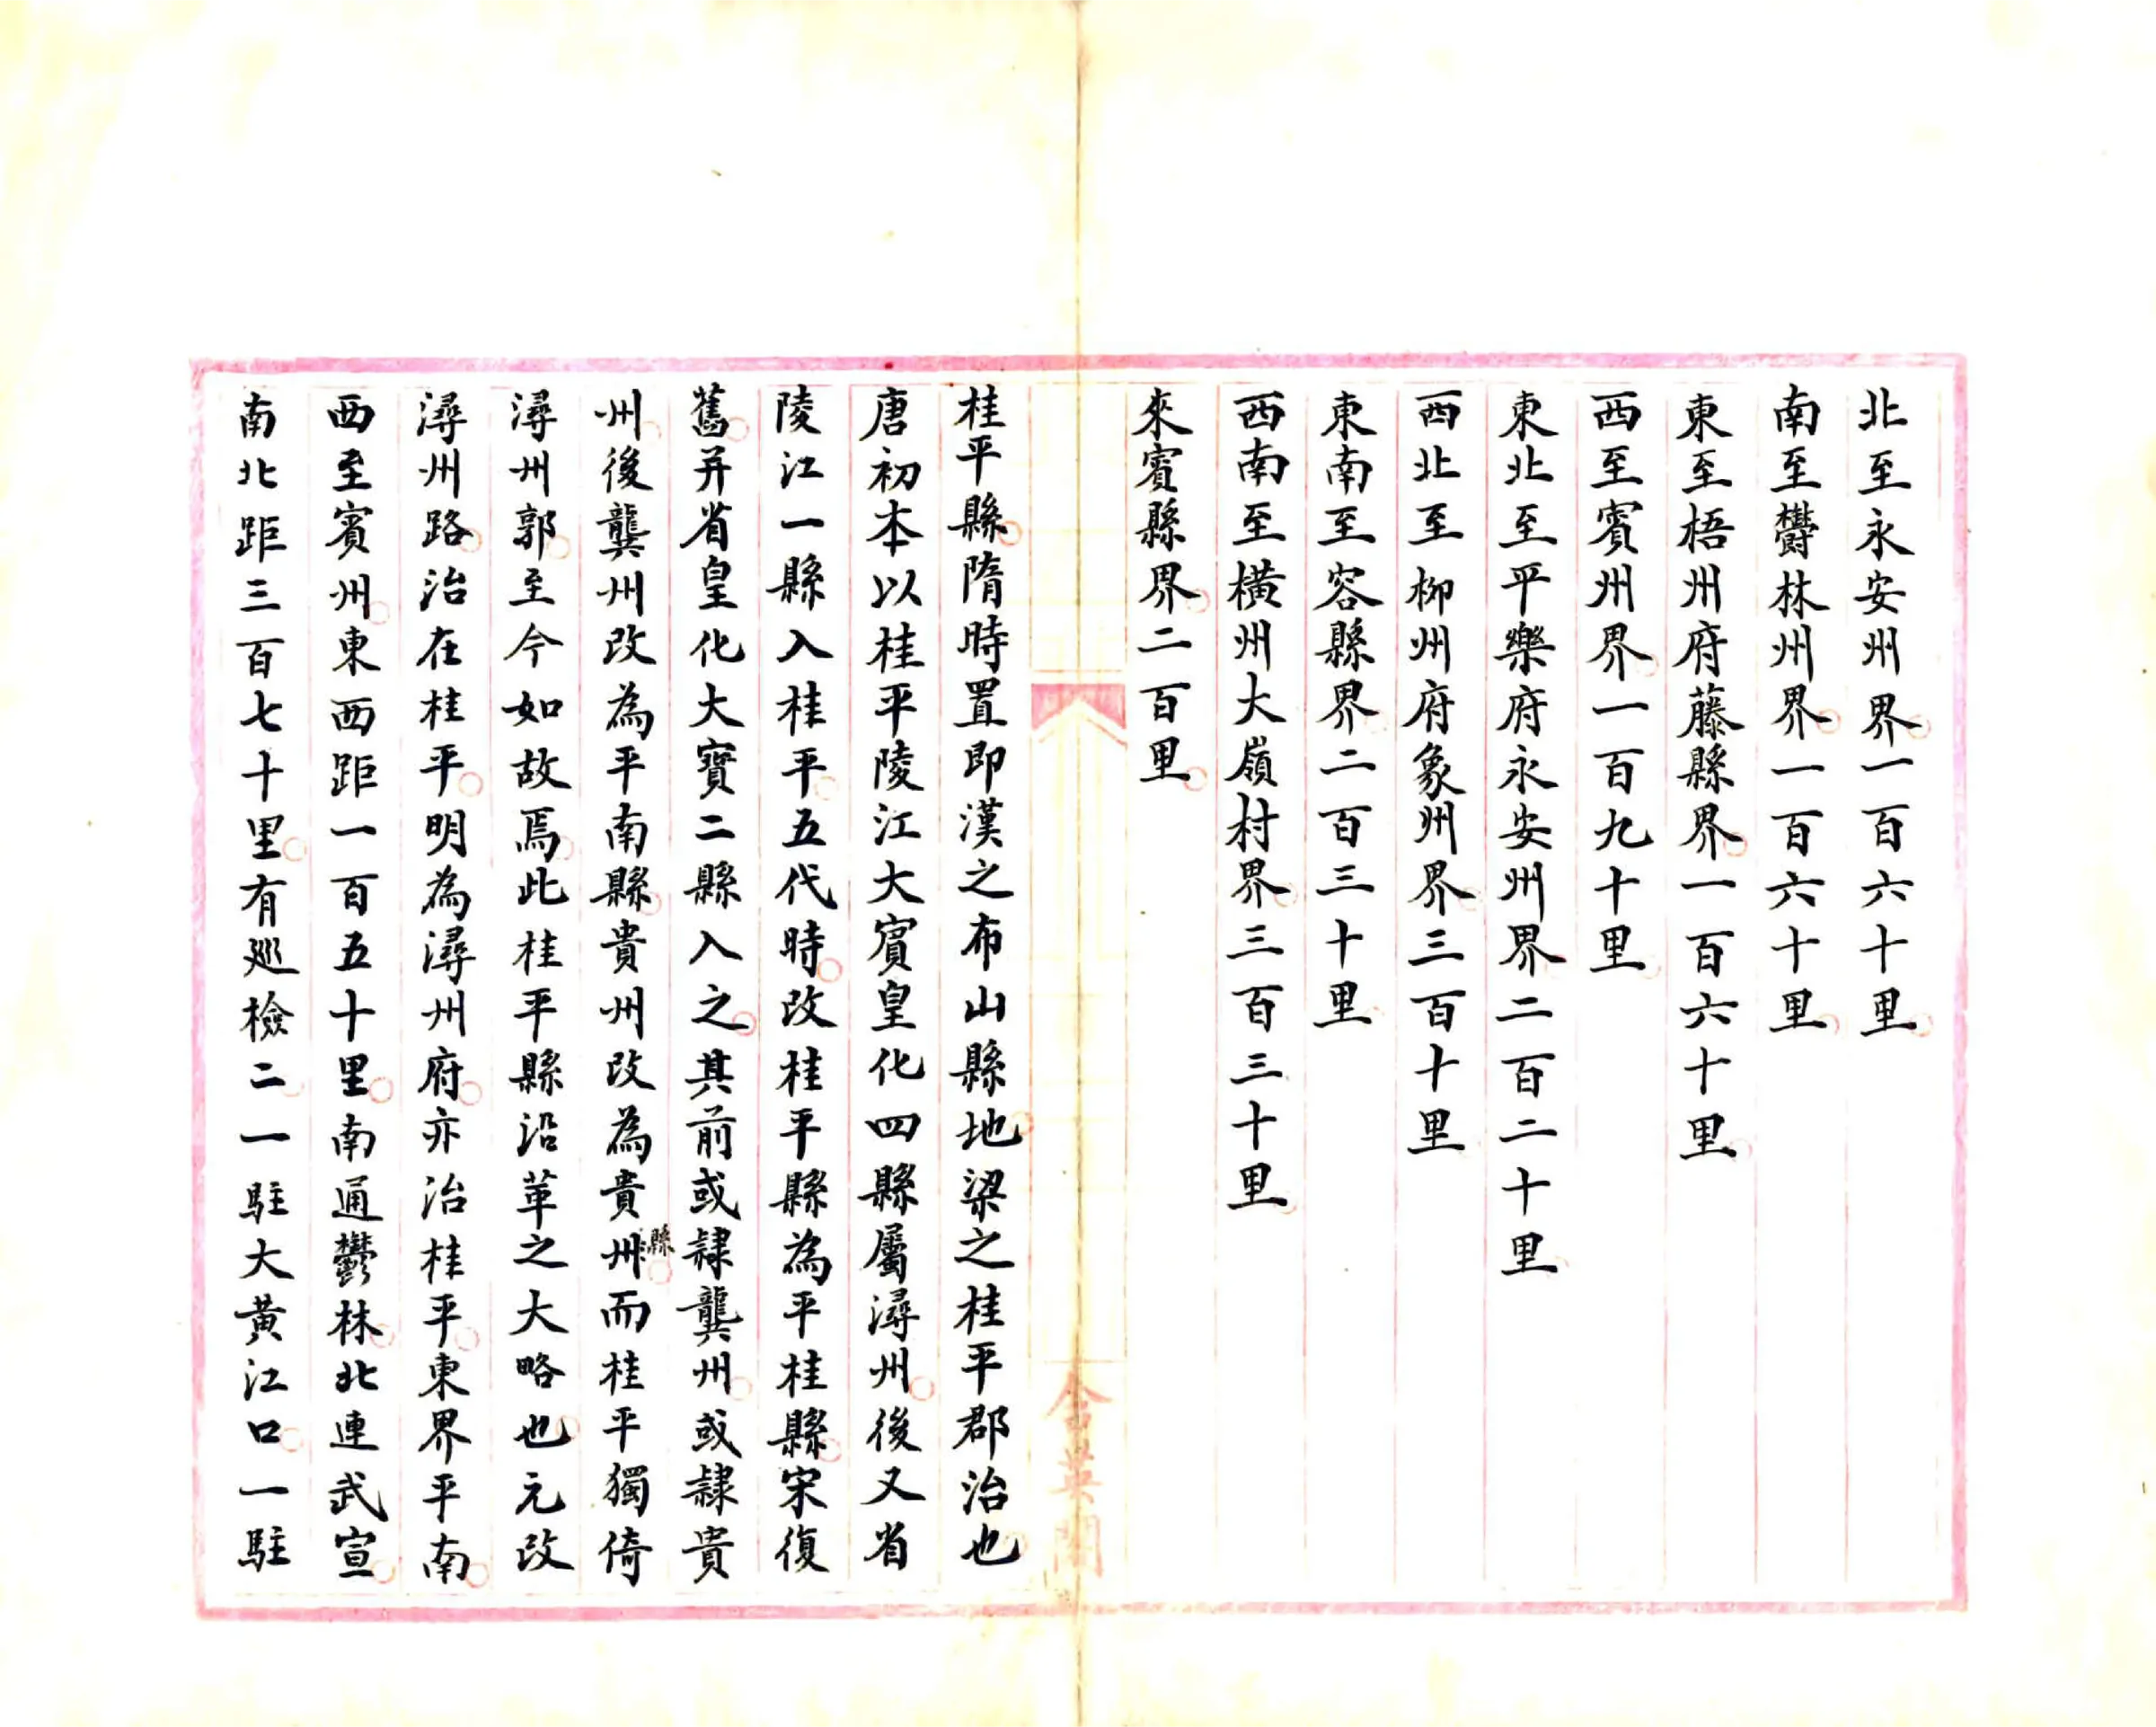 北至永安州界一百六十里
南至欝林州界一百六十里
東至梧州府藤縣界一百六十里
西至賓州界一百九十里
東北至平樂府永安州界二百二十里
西北至柳州府象州界三百十里
東南至容縣界二百三十里
西南至橫州大嶺村界三百三十里
來賓縣界二百里
含英閣
桂平縣隋時置即漢之布山縣地梁之桂平郡治也
唐初本以桂平陵江大賓皇化四縣屬潯州後又省
陵江一縣入桂平五代時改桂平縣為平桂縣宋復
舊并省皇化大賓二縣入之其前或隸龔州或隸貴
州後龔州改為平南縣貴州改為貴州縣而桂平獨倚
潯州郭至今如故焉此桂平縣沿革之大略也元改
潯州路治在桂平明為潯州府亦治桂平東界平南
西至賓州東西距一百五十里南通欝林北連武宣
南北距三百七十里有廵檢二一駐大黃江口一駐